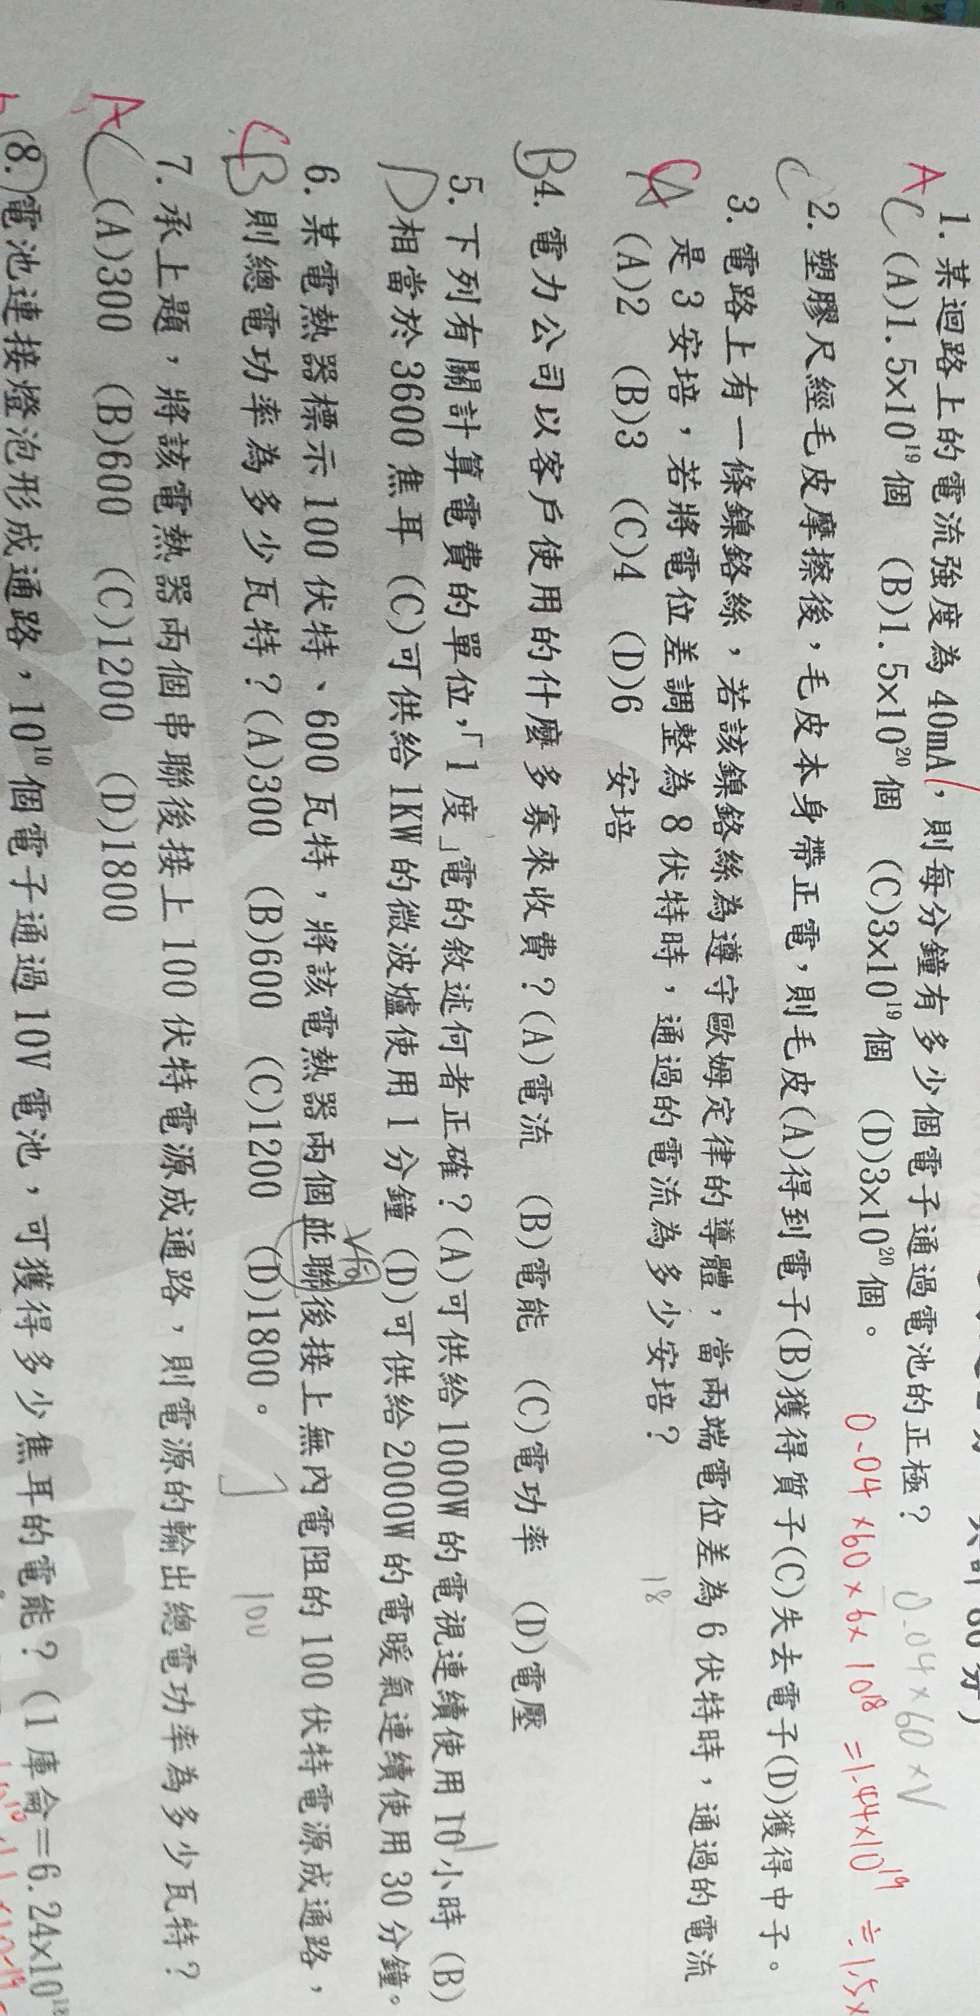 1. 某迴路上的電流強度為 40mA, 則每分鐘有多少個電子通過電池的正極? 0.04×60×
AC (A)1.5x10¹⁹個 (B)1.5x10²⁰個 (C)3x10¹⁹個 (D)3x10²⁰個。 0.04×60×6×10¹⁸ =1.44×10¹⁹ ≒1.5×
C 2. 塑膠尺經毛皮摩擦後,毛皮本身帶正電,則毛皮(A)得到電子(B)獲得質子(C)失去電子(D)獲得中子。
3. 電路上有一條鎳鉻絲,若該鎳鉻絲為遵守歐姆定律的導體,當兩端電位差為 6 伏特時,通過的電流
CA 是 3 安培,若將電位差調整為 8 伏特時,通過的電流為多少安培? 18
(A)2 (B)3 (C)4 (D)6 安培
B 4. 電力公司以客戶使用的什麼多寡來收費?(A)電流 (B)電能 (C)電功率 (D)電壓
5. 下列有關計算電費的單位,「1 度」電的敘述何者正確?(A)可供給 1000W 的電視連續使用 10 小時 (B)
D 相當於 3600 焦耳 (C)可供給 1KW 的微波爐使用 1 分鐘 (D)可供給 2000W 的電暖氣連續使用 30 分鐘。
6. 某電熱器標示 100 伏特、600 瓦特,將該電熱器兩個並聯後接上無內電阻的 100 伏特電源成通路,
CB 則總電功率為多少瓦特?(A)300 (B)600 (C)1200 (D)1800。 100
7. 承上題,將該電熱器兩個串聯後接上 100 伏特電源成通路,則電源的輸出總電功率為多少瓦特?
AC (A)300 (B)600 (C)1200 (D)1800
8. 電池連接燈泡形成通路,10¹⁰個電子通過 10V 電池,可獲得多少焦耳的電能?(1 庫侖=6.24x10¹⁸